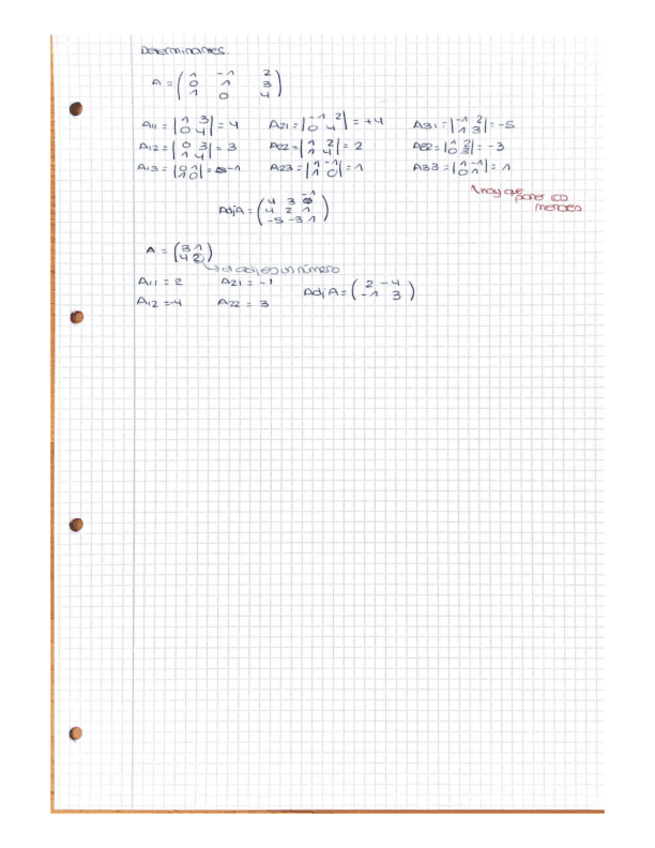 Determinantes.
A = ( 1 -1 2
0 1 3
1 0 4 )
A11 = |1 3 0 4| = 4 A21 = |-1 2 0 4| = +4 A31 = |-1 2 1 3| = -5
A12 = |0 3 1 4| = 3 A22 = |1 2 1 4| = 2 A32 = |1 2 0 3| = -3
A13 = |0 1 1 0| = -1 A23 = |1 -1 1 0| = 1 A33 = |1 -1 0 1| = 1
hay que
poner los
menores
AdjA = ( 4 3 -1
4 2 1
-5 -3 1 )
A = ( 3 1
4 2 )
el adj es un número
A11 = 2 A21 = -1 AdjA = ( 2 -4
-1 3 )
A12 = -4 A22 = 3